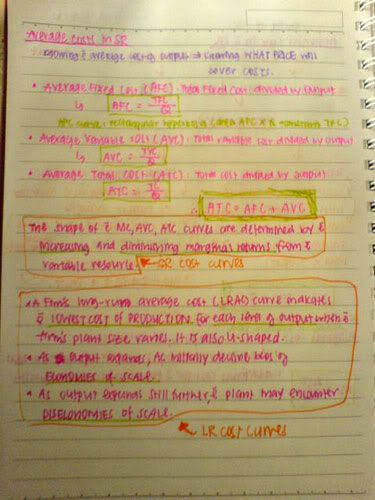 Average Costs in SR
Knowing ē average cost of output → knowing WHAT PRICE will
cover COSTS.
• Average Fixed Cost (AFC): Total Fixed Cost divided by output
↳ AFC = TFC/Q
AFC curve: rectangular hyperbola (area AFC x Q TFC)
• Average Variable Cost (AVC): Total variable cost divided by output
↳ AVC = TVC/Q
• Average Total Cost (ATC): Total cost divided by output
ATC = TC/Q
∴ ATC = AFC + AVC
The shape of ē MC, AVC, ATC curves are determined by ē
increasing and diminishing marginal returns from ē
variable resource.
SR COST CURVES
• A Firm's long-run average cost (LRAC) curve indicates
ē LOWEST COST OF PRODUCTION for each level of output when ē
firm's plant size varies. It is also U-shaped.
• As output expands, AC initially decline bcos of
ECONOMIES OF SCALE.
• As output expands still further, ē plant may encounter
DISECONOMIES OF SCALE.
LR COST CURVES